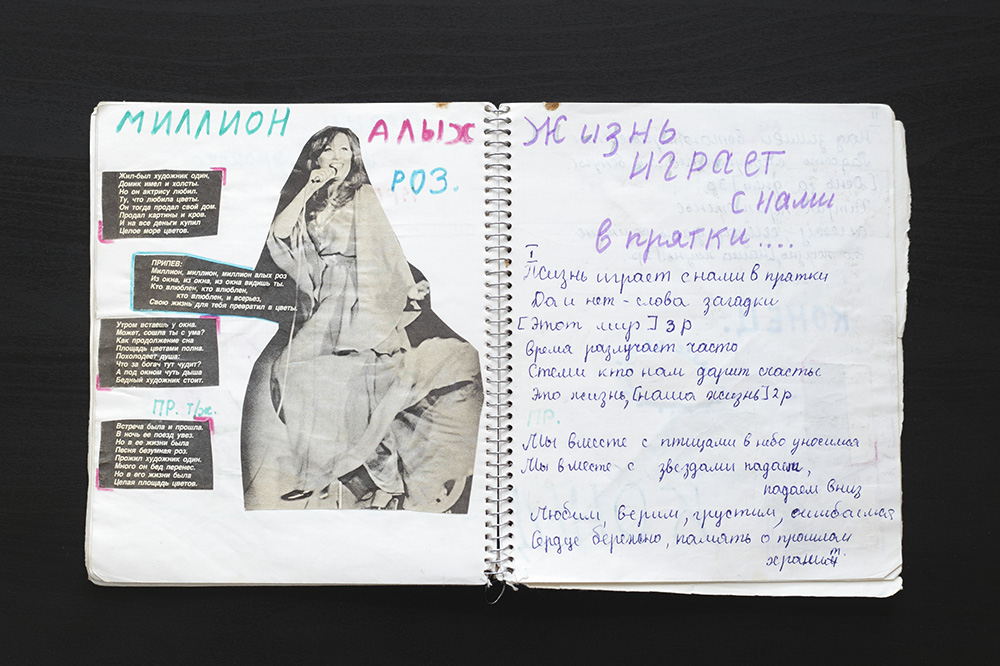 МИЛЛИОН АЛЫХ
РОЗ.
Жил-был художник один,
Домик имел и холсты.
Но он актрису любил.
Ту, что любила цветы.
Он тогда продал свой дом.
Продал картины и кров.
И на все деньги купил
Целое море цветов.
ПРИПЕВ:
Миллион, миллион, миллион алых роз
Из окна, из окна, из окна видишь ты.
Кто влюблен, кто влюблен,
кто влюблен, и всерьез,
Свою жизнь для тебя превратил в цветы.
Утром встаешь у окна.
Может, сошла ты с ума?
Как продолжение сна
Площадь цветами полна.
Похолодает душа:
Что за богач тут чудит?
А под окном чуть дыша
Бедный художник стоит.
ПР. т/же.
Встреча была и прошла.
В ночь ее поезд увез.
Но в ее жизни была
Песня безумная роз.
Прожил художник один.
Много он бед перенес.
Но в его жизни была
Целая площадь цветов.
ЖИЗНЬ
ИГРАЕТ
С НАМИ
В ПРЯТКИ....
I
Жизнь играет с нами в прятки
Да и нет - слова загадки
[Этот мир] 3 р
Время разлучает часто
С теми кто нам дарит счастье
Это жизнь, [наша жизнь] 2 р
ПР.
Мы вместе с птицами в небо уносимся
Мы вместе с звездами падаем,
падаем вниз
Любим, верим, грустим, ошибаемся
Сердце бережно, память о прошлом
хранит